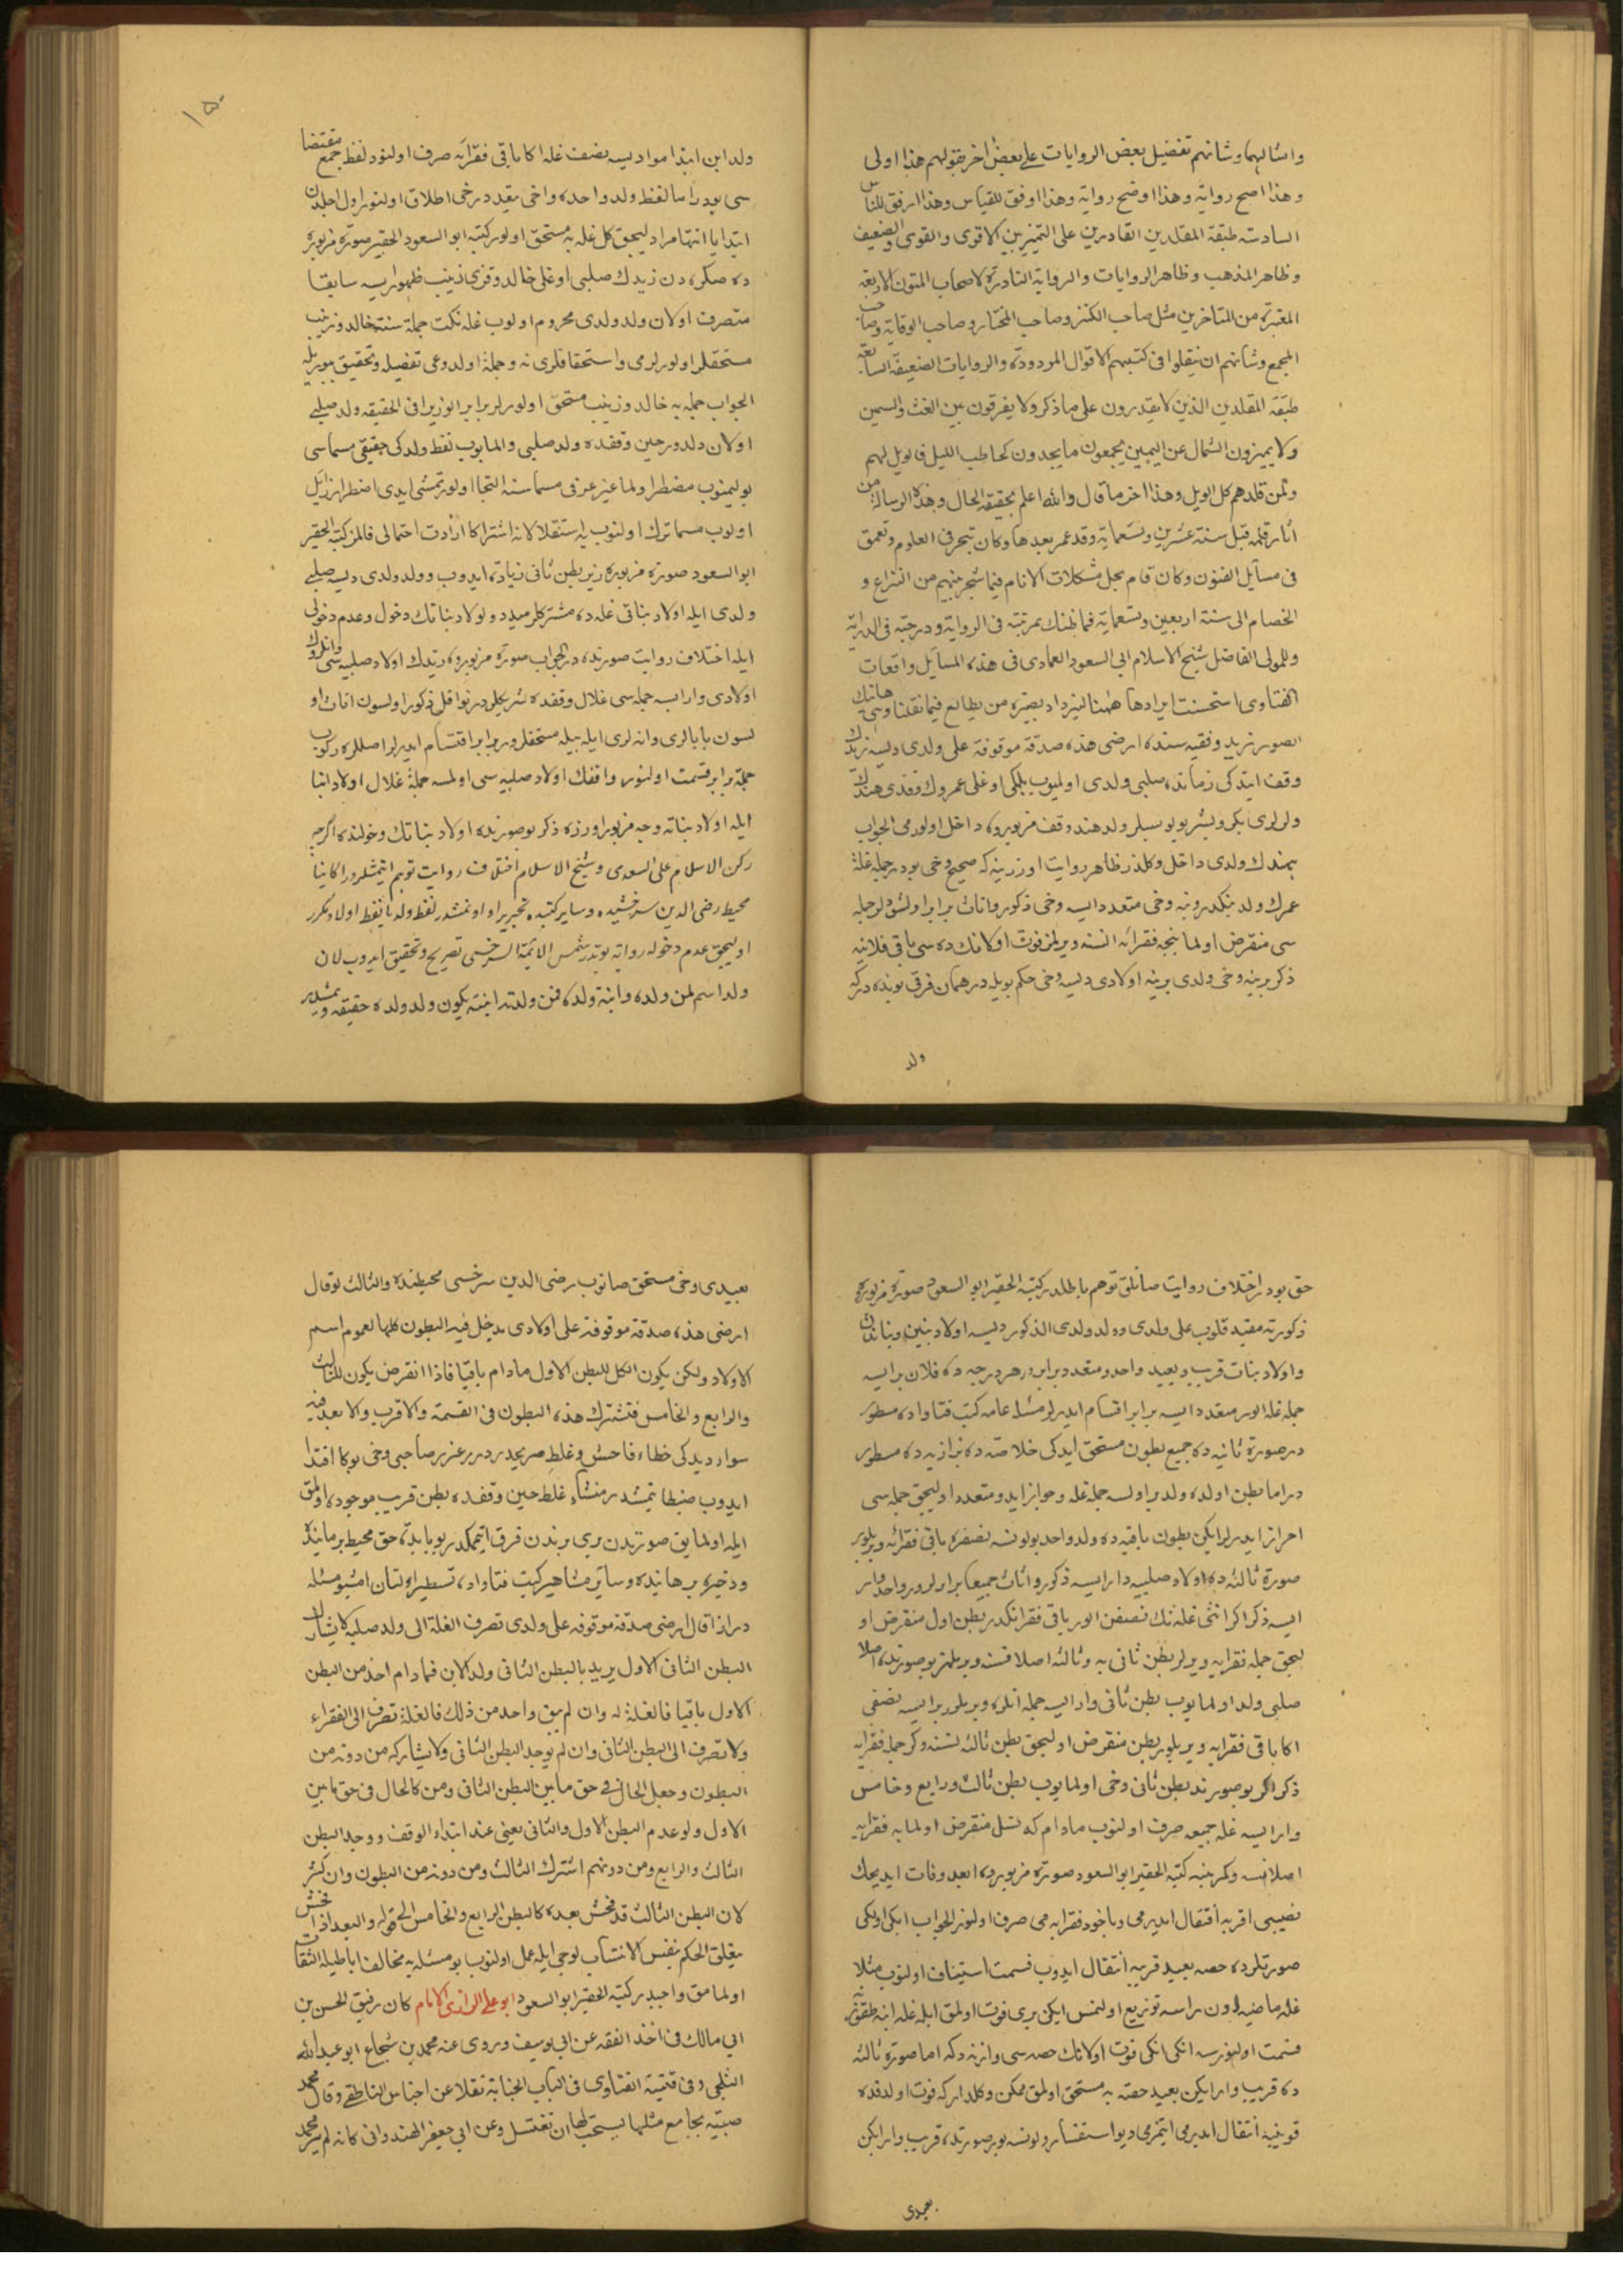 وامثالهما وشانهم تفضيل بعض الروايات على بعض اخر بقولهم هذا اولى
وهذا اصح رواية وهذا اوضح رواية وهذا اوفق للقياس وهذا ارفق للناس
السادسة طبقة المقلدين القادرين على التمييز بين الاقوى والقوى والضعيف
وظاهر المذهب وظاهر الروايات والرواية النادرة كاصحاب المتون الاربعة
المعتبرة من المتاخرين مثل صاحب الكنز وصاحب المختار وصاحب الوقاية وصاحب
المجمع وشانهم ان ينقلوا فى كتبهم الاقوال المردودة والروايات الضعيفة السابعة
طبقة المقلدين الذين لا يقدرون على ما ذكر ولا يفرقون بين الغث والسمين
ولا يميزون الشمال عن اليمين يجمعون ما يجدون كحاطب الليل فالويل لهم
ولمن قلدهم كل الويل وهذا اخر ما قال والله اعلم بحقيقة الحال وهذه الرسالة من
اثار قلمه قبل سنة عشرين وتسعماية وقد عمر بعدها وكان تبحر فى العلوم وتعمق
فى مسايل الفنون وكان قام بحل مشكلات الانام فيما شجر بينهم من النزاع و
الخصام الى سنة اربعين وتسعماية فما ظنك بمرتبته فى الرواية ودرجته فى الدراية
وللمولى الفاضل شيخ الاسلام ابى السعود العمادى فى هذه المسايل واقعات
الفتاوى استحسنت ايرادها ههنا ليزداد بصيرة من يطالع فيما نقلنا وهى هاتيك
الصور زيد وقفيه سنده ارضى هذه صدقة موقوفة على ولدى ديسه زيدك
وقف ايتدكى زمانده صلبى ولدى اولميوب بلكى اوغلى عمروك وقزى هندك
ولدلرى بكر وبشر بولوسبلر ولد هند وقف مزبوره داخل اولورمى الجواب
هندك ولدى داخل وكلدر ظاهر روايت اوزرينه كه صحيح دخى بودر جمله غلة
عمرك ولدينكدر ونه دخى متعدد ايسه دخى ذكور واناث برابر اولشور لر جمله
سى منقرض اولماينجه فقرايه نسنه ويرلمز فوت اولانك ده سى باقى قلانيه
ذكر برينه دخى ولدى يرينه اولادى ديسه دخى حكم بويله در همان فرقى بونده دركه
ولد
١٥٠
ولد ابن ابتدا مواد ديسه نصف غله اكا باقى فقرايه صرف اولنور لفظ جمع مقتضا
سى بودر اما لفظ ولد واحده واخى بقيد دخى اطلاق اولنور اول اجلدن
ابتدايا انتها مراد ليجق كل غله يه مستحق اولور كتبه ابو السعود الحقير صورة مزبوره
ده صكره دن زيدك صلبى اوغلى خالد وقزى زينب ظهور ايسه سابقا
متصرف اولان ولد ولدى محروم اولوب غله نكت جملة سنه خالد وزينب
مستحقلر اولورلرمى واستحقاقلرى نه وجهله اولدوغى تفصيل وتحقيق بيوريله
الجواب جمله يه خالد وزينب مستحق اولورلر برابر الورلر فى الحقيقه ولد صلبى
اولان ولدور حين وقفده ولد صلبى والمايوب لفظ ولدكى حقيقى مسماسى
بوليمنوب مضطر اولماغيز عرفى مسماسنه التجا اولورتمشى ايدى اضطرار زايل
اولوب مسما ترك اولنوب يه استقلالانه اشتراكا ارادت احتمالى قالمز كتبه الحقير
ابو السعود صورة مزبوره زيد بطن ثانى زيادة ايدوب وولد ولدى ديسه صلبى
ولدى ايله اولاد بناتى غله ده مشتركلر ميدر ولولاد بناتك دخول وعدم دخولى
ايله اختلاف روايت صورتده در الجواب صورة مزبوره زيدك اولاد صلبيه سى وانلرك
اولادى وار ايسه جمله سى غلال وقفده شريكلردر نوافل ذكور اولسون اناث او
لسون بابالرى وانه لرى ايله بيله مستحقلردر برابر اقتسام ايدرلر اصللره ركوب
جملة برابر قسمت اولنور واقفك اولاد صلبيه سى اولمسه جملة غلال اولاد ابنا
ايله اولاد بناته وجه مزبور اوزره ذكر بو صورتده اولاد بناتك دخولنده اكرچه
ركن الاسلام على السعدى وشيخ الاسلام اختلاف روايت توهم ايتمشلردر اكا بنا
محيط رضى الدين سرخسيده وساير كتبده تحرير اولونمشدر لفظ ولد يا لفظ اولاد مكرر
اوليجق عدم دخوله روايت يوقدر شمس الائمة السرخسى تصريح وتحقيق ايدوب لان
ولد اسم لمن ولده وابنة ولده فمن ولدته ابنته يكون ولد ولده حقيقة ديمشلر
حق بودر اختلاف روايت صانلق توهم باطلدر كتبه الحقير ابو السعود صورة مزبوره
ذكورته مقيد قلوب على ولدى وولد ولدى الذكور ديسه اولاد بنين وبناتدن
واولاد بنات قريب وبعيد واحد ومتعدد برابر در هر درجه ده فلان بر ايسه
جمله غله الور متعدد ايسه برابر اقتسام ايدرلر مسئله عامه كتب فتاواده مسطور
در صورة ثانيه ده جميع بطون مستحق ايدكى خلاصه ده بزازيه ده مسطور
در اما بطن اولده ولد بر اولسه جمله غله وحواز ايد ومتعدد اوليجق جمله سى
احراز ايدرلر ايكن بطون باقيه ده ولد واحد بولونسه نصفه باقى فقرايه ويريلور
صورة ثالثه ده اولاد صلبيه وار ايسه ذكور واناث جميعا برابر لورلر واحد وار
ايسه ذكر اكر انثى غله نك نصفن الور باقى فقرانكدر بطن اول منقرض او
ليجق جمله فقرايه ويرلر بطن ثانى يه وثالثه اصلا نسنه ويريلمز بو صورتده اصلا
صلبى ولد اولمايوب بطن ثانى وار ايسه جمله انلره ويريلور بر ايسه نصفى
اكا باقى فقرايه ويريلور بطن منقرض اوليجق بطن ثالثه نسنه وكر جمله فقرايه
ذكر اكر بو صورتده بطن ثانى دخى اولمايوب بطن ثالث ورابع وخامس
وار ايسه غله جميعه صرف اولنوب مادام كه نسل منقرض اولمايه فقرايه
اصلا نسنه وكرميه كتبه الحقير ابو السعود صورة مزبوره ابعد وفات ايديجك
نصيبى اقربه انتقال ايدرمى وياخود فقرايه مى صرف اولنور الجواب ايكى اولكى
صورتلرده حصه بعيد قريبه انتقال ايدوب قسمت استيناف اولنوب مثلا
غله ماضيه اون راسه توزيع اولنمش ايكن برى فوت اولمق ايله غله اتيه طقوزه
قسمت اولنورسه انكى انكى فوت اولانك حصه سى وانزده كه اما صورة ثالثه
ده قريب وار ايكن بعيد حصه يه مستحق اولمق ممكن وكلدر كه فوت اولدقده
قونينه انتقال ايدرمى ايتمزمى ديو استفسار اولونسه بو صورتده قريب وار ايكن
بعيدى
بعيدى دخى مستحق صانوب رضى الدين سرخسى محيطنده والثالث لو قال
ارضى هذه صدقة موقوفة على اولادى يدخل فيه البطون كلها لعموم اسم
الاولاد ولكن يكون الكل للبطن الاول مادام باقيا فاذا انقرض يكون للثالث
والرابع والخامس فتشترك هذه البطون فى القسمة والاقرب والابعد فيه
سواء ديدكى خطاء فاحش وغلط صريحدر درر غرر صاحبى دخى بوكا اقتدا
ايدوب ضبط ايتمشدر منشاء غلط حين وقفده بطن قريب موجود اولمق
ايله اولمايق صورتدن برى برندن فرق ايتمكدر بو بابده حق محيط برهانيده
وذخيره برهانيده وساير مشاهير كتب فتاواده تسطير اولنان اشبو مسئله
در اذا قال ارضى صدقة موقوفة على ولدى تصرف الغلة الى ولد صلبه لا يشارك
البطن الثانى الاول يريد بالبطن الثانى ولد الابن فما دام احد من البطن
الاول باقيا فالغلة له وان لم يبق واحد من ذلك فالغلة تصرف الى الفقراء
ولا تصرف الى البطن الثانى وان لم يوجد البطن الثانى ولا يشاركه من دونه من
البطون وجعل الحال فى حق ما بين البطن الثانى ومن كالحال فى حق ما بين
الاول ولو عدم البطن الاول والثانى يعنى عند ابتداء الوقف ووجد البطن
الثالث والرابع ومن دونهم اشترك الثالث ومن دونه من البطون وان كثر
لان البطن الثالث قد فحش بعده كالبطن الرابع والخامس الى قوله والبعد اذا فحش
يتعلق الحكم بنفس الانتساب لوجى ايله عمل اولنوب بو مسئله يه مخالف اباطيله التفات
اولمامق واجبدر كتبه الحقير ابو السعود ابو على الرازى الامام كان رفيق الحسن بن
ابى مالك فى اخذ الفقه عن ابى يوسف وروى عنه محمد بن شجاع ابو عبد الله
الثلجى وفى قنية الفتاوى فى الباب الجنابة نقلا عن اجناس الناطفى وقال محمد
صبية يجامع مثلها يستحب لها ان تغتسل وعن ابى جعفر الهندوانى كانه لم ير محمد